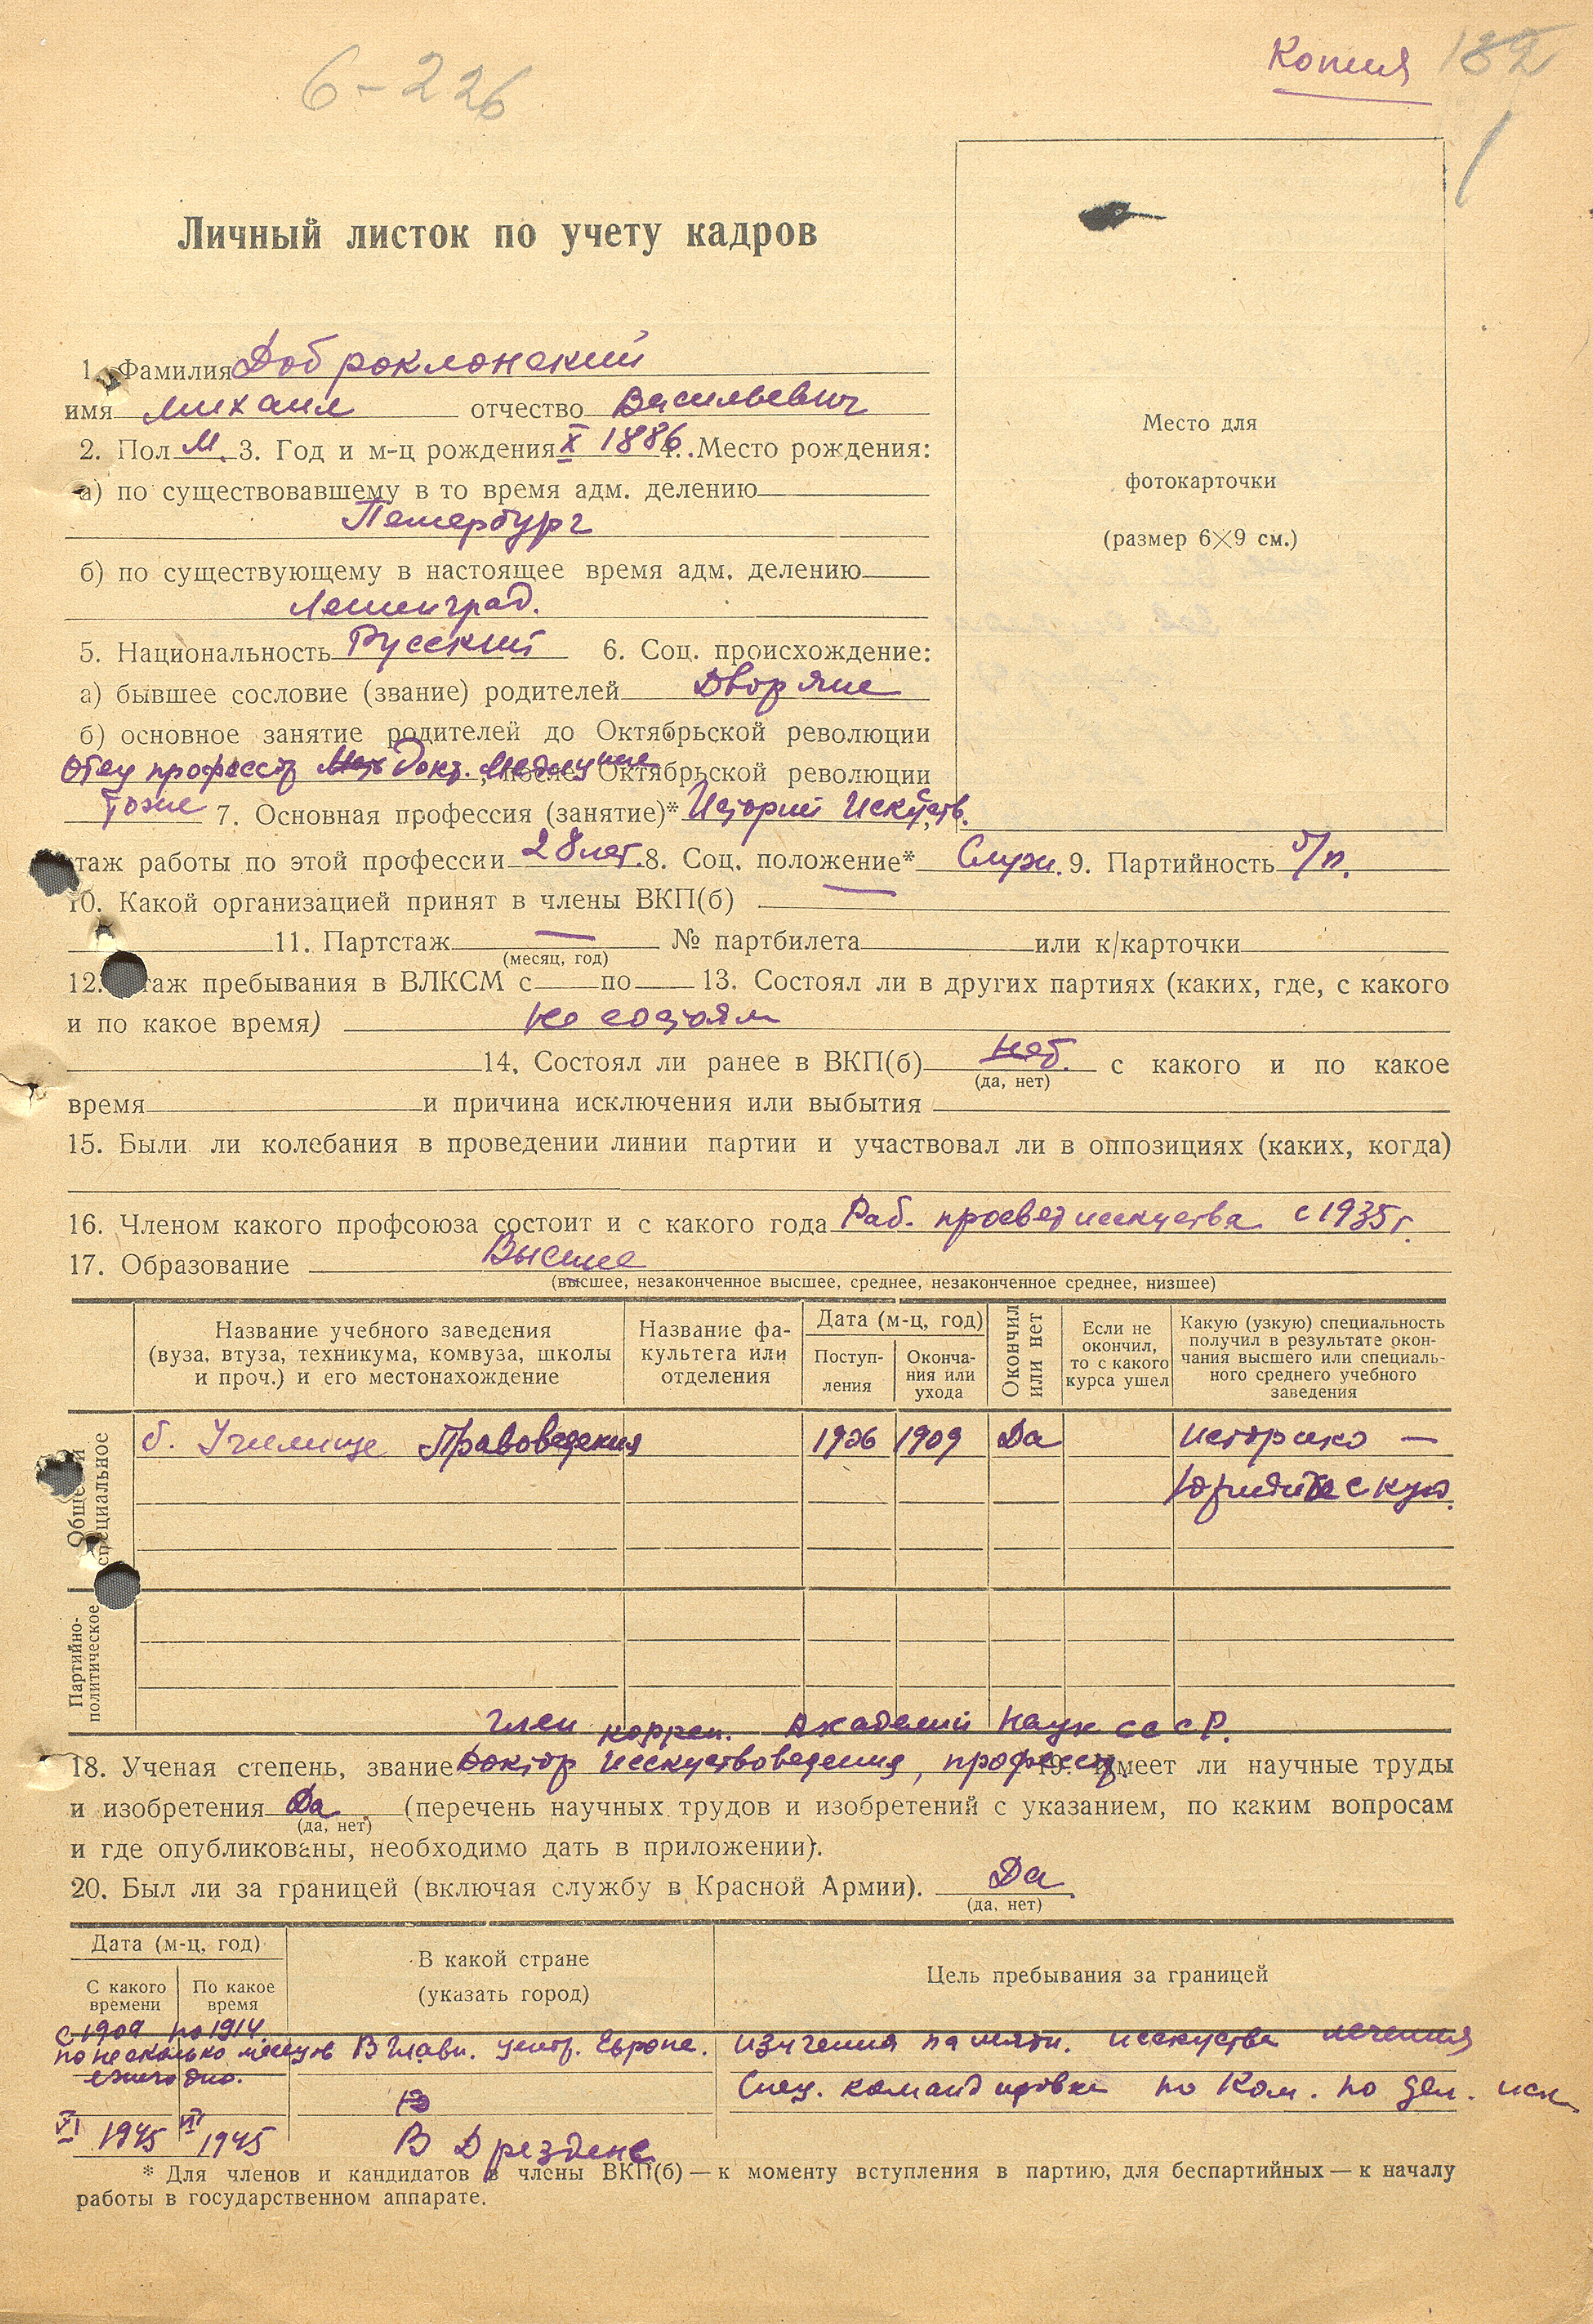 6-226
Копия 182
1
Личный листок по учету кадров
Место для
фотокарточки
(размер 6×9 см.)
1. Фамилия Доброклонский
имя Михаил отчество Васильевич
2. Пол М. 3. Год и м-ц рождения X 1886 4. Место рождения:
а) по существовавшему в то время адм. делению
Петербург
б) по существующему в настоящее время адм. делению
Ленинград.
5. Национальность Русский 6. Соц. происхождение:
а) бывшее сословие (звание) родителей Дворяне
б) основное занятие родителей до Октябрьской революции
Отец профессор Докт. Медицине, после Октябрьской революции
Тоже 7. Основная профессия (занятие)* Истории Искусств.
таж работы по этой профессии 28 лет. 8. Соц. положение* Служ. 9. Партийность б/п.
10. Какой организацией принят в члены ВКП(б) —
11. Партстаж — № партбилета или к/карточки
(месяц, год)
12. таж пребывания в ВЛКСМ с по 13. Состоял ли в других партиях (каких, где, с какого
и по какое время) не состоял
14. Состоял ли ранее в ВКП(б) нет. с какого и по какое
(да, нет)
время и причина исключения или выбытия
15. Были ли колебания в проведении линии партии и участвовал ли в оппозициях (каких, когда)
16. Членом какого профсоюза состоит и с какого года Раб. просвет искуства с 1935 г.
17. Образование Высшее
(высшее, незаконченное высшее, среднее, незаконченное среднее, низшее)
Название учебного заведения
(вуза, втуза, техникума, комвуза, школы
и проч.) и его местонахождение
Название фа-
культета или
отделения
Дата (м-ц, год)
Поступ-
ления
Оконча-
ния или
ухода
Окончил
или нет
Если не
окончил,
то с какого
курса ушел
Какую (узкую) специальность
получил в результате окон-
чания высшего или специаль-
ного среднего учебного
заведения
Общее и
специальное
б. Училище Правоведения 1906 1909 Да Историко —
Юридическую.
Партийно-
политическое
Член корресп. Академии Наук СССР.
18. Ученая степень, звание Доктор Исскуствоведения, профессор 19. Имеет ли научные труды
и изобретения Да. (перечень научных трудов и изобретений с указанием, по каким вопросам
(да, нет)
и где опубликованы, необходимо дать в приложении).
20. Был ли за границей (включая службу в Красной Армии). Да
(да, нет)
Дата (м-ц, год)
С какого
времени
По какое
время
В какой стране
(указать город)
Цель пребывания за границей
с 1909 по 1914.
по несколько месяцев В Главн. центр. Европе. изучения памятн. исскуства лечения
ежегодно.
Спец. командировка по Ком. по дел. иск
VI 1945 VII 1945 В Дрездене
* Для членов и кандидатов в члены ВКП(б) — к моменту вступления в партию, для беспартийных — к началу
работы в государственном аппарате.